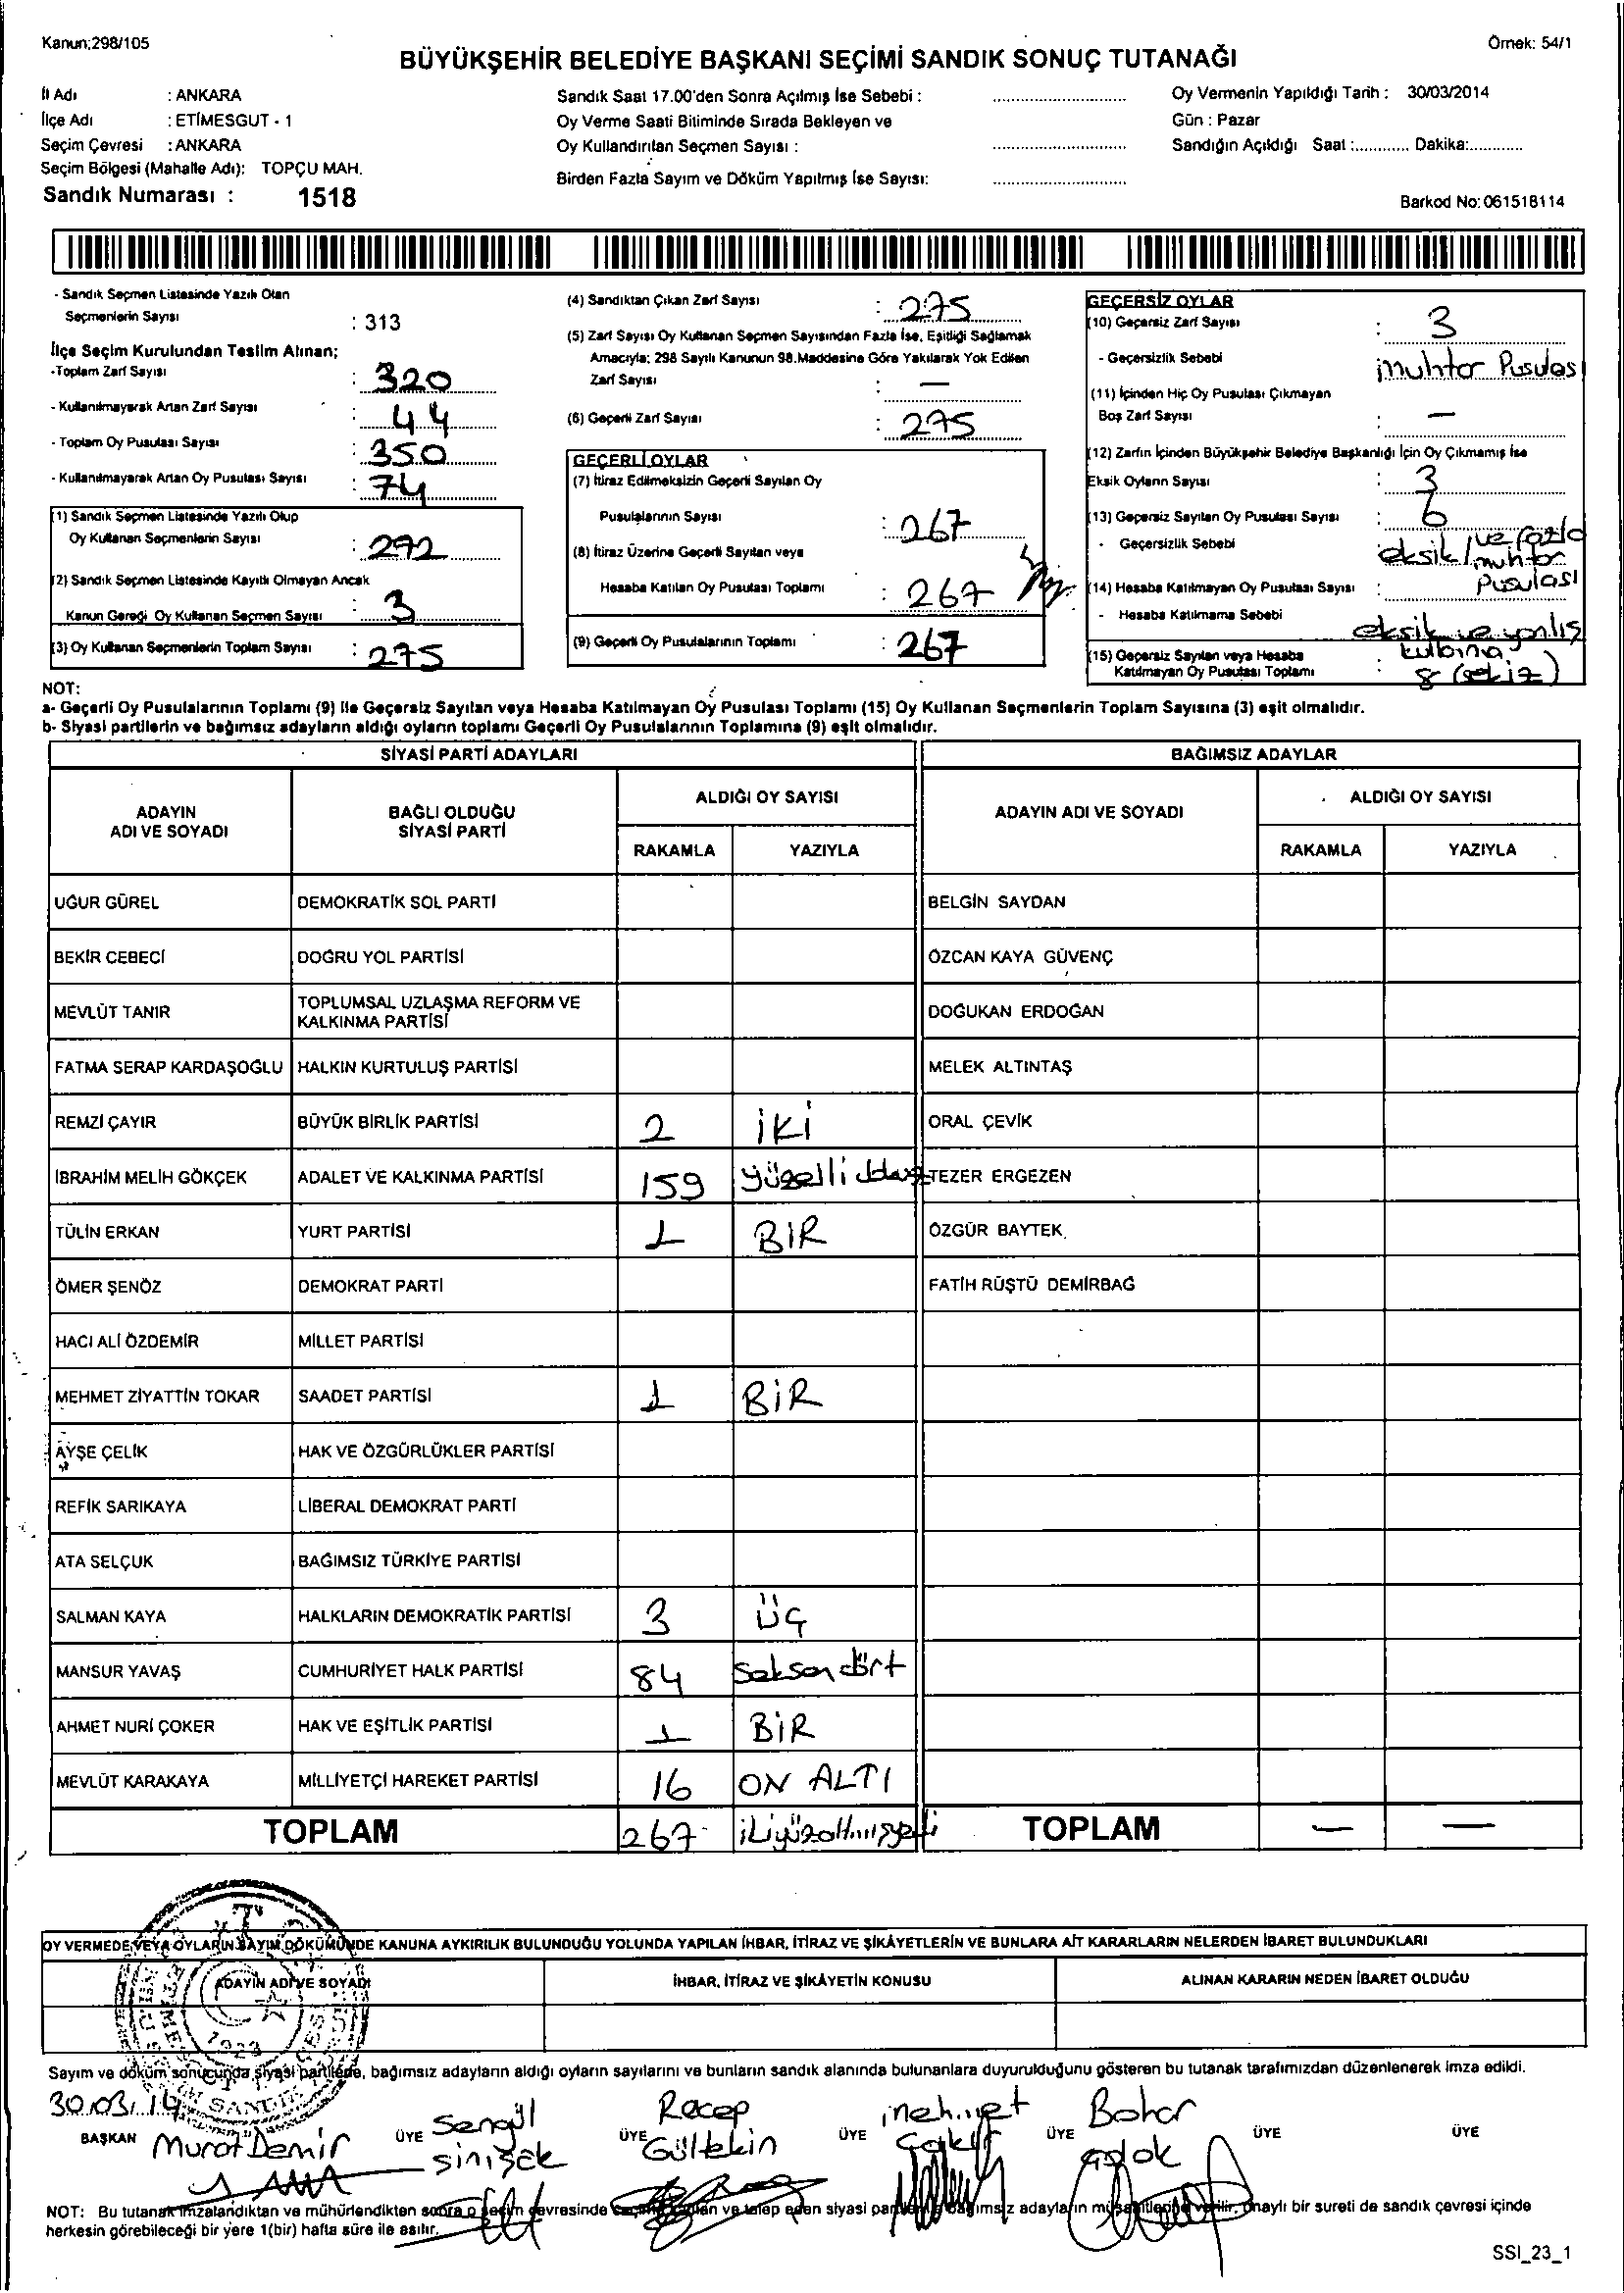 Kanun;298/105
Örnek: 54/1
BÜYÜKŞEHİR BELEDİYE BAŞKANI SEÇİMİ SANDIK SONUÇ TUTANAĞI
İl Adı : ANKARA
İlçe Adı : ETİMESGUT - 1
Seçim Çevresi : ANKARA
Seçim Bölgesi (Mahalle Adı): TOPÇU MAH.
Sandık Numarası : 1518
Sandık Saat 17.00'den Sonra Açılmış İse Sebebi :
Oy Verme Saati Bitiminde Sırada Bekleyen ve
Oy Kullandırılan Seçmen Sayısı :
Birden Fazla Sayım ve Döküm Yapılmış İse Sayısı:
Oy Vermenin Yapıldığı Tarih : 30/03/2014
Gün : Pazar
Sandığın Açıldığı Saat :............ Dakika:............
Barkod No:061518114
- Sandık Seçmen Listesinde Yazılı Olan
Seçmenlerin Sayısı : 313
İlçe Seçim Kurulundan Teslim Alınan;
-Toplam Zarf Sayısı : 320
- Kullanılmayarak Artan Zarf Sayısı : 44
- Toplam Oy Pusulası Sayısı : 350
- Kullanılmayarak Artan Oy Pusulası Sayısı : 74
(1) Sandık Seçmen Listesinde Yazılı Olup
Oy Kullanan Seçmenlerin Sayısı : 272
(2) Sandık Seçmen Listesinde Kayıtlı Olmayan Ancak
Kanun Gereği Oy Kullanan Seçmen Sayısı : 3
(3) Oy Kullanan Seçmenlerin Toplam Sayısı : 275
(4) Sandıktan Çıkan Zarf Sayısı : 275
(5) Zarf Sayısı Oy Kullanan Seçmen Sayısından Fazla İse, Eşitliği Sağlamak
Amacıyla; 298 Sayılı Kanunun 98.Maddesine Göre Yakılarak Yok Edilen
Zarf Sayısı : —
(6) Geçerli Zarf Sayısı : 275
GEÇERLİ OYLAR
(7) İtiraz Edilmeksizin Geçerli Sayılan Oy
Pusulalarının Sayısı : 267
(8) İtiraz Üzerine Geçerli Sayılan veya
Hesaba Katılan Oy Pusulası Toplamı : 267
(9) Geçerli Oy Pusulalarının Toplamı : 267
GEÇERSİZ OYLAR
(10) Geçersiz Zarf Sayısı : 3
- Geçersizlik Sebebi muhtar Pusulası
(11) İçinden Hiç Oy Pusulası Çıkmayan
Boş Zarf Sayısı : —
(12) Zarfın İçinden Büyükşehir Belediye Başkanlığı İçin Oy Çıkmamış İse
Eksik Oyların Sayısı : 3
(13) Geçersiz Sayılan Oy Pusulası Sayısı : 6
- Geçersizlik Sebebi eksik / ve fazla
muhtar
pusulası
(14) Hesaba Katılmayan Oy Pusulası Sayısı :
- Hesaba Katılmama Sebebi
eksik ve yanlış
(15) Geçersiz Sayılan veya Hesaba
Katılmayan Oy Pusulası Toplamı : 8 (sekiz)
NOT:
a- Geçerli Oy Pusulalarının Toplamı (9) ile Geçersiz Sayılan veya Hesaba Katılmayan Oy Pusulası Toplamı (15) Oy Kullanan Seçmenlerin Toplam Sayısına (3) eşit olmalıdır.
b- Siyasi partilerin ve bağımsız adayların aldığı oyların toplamı Geçerli Oy Pusulalarının Toplamına (9) eşit olmalıdır.
SİYASİ PARTİ ADAYLARI
BAĞIMSIZ ADAYLAR
ADAYIN
ADI VE SOYADI
BAĞLI OLDUĞU
SİYASİ PARTİ
ALDIĞI OY SAYISI
RAKAMLA YAZIYLA
ADAYIN ADI VE SOYADI
ALDIĞI OY SAYISI
RAKAMLA YAZIYLA
UĞUR GÜREL DEMOKRATİK SOL PARTİ BELGİN SAYDAN
BEKİR CEBECİ DOĞRU YOL PARTİSİ ÖZCAN KAYA GÜVENÇ
MEVLÜT TANIR TOPLUMSAL UZLAŞMA REFORM VE
KALKINMA PARTİSİ DOĞUKAN ERDOĞAN
FATMA SERAP KARDAŞOĞLU HALKIN KURTULUŞ PARTİSİ MELEK ALTINTAŞ
REMZİ ÇAYIR BÜYÜK BİRLİK PARTİSİ 2 İKİ ORAL ÇEVİK
İBRAHİM MELİH GÖKÇEK ADALET VE KALKINMA PARTİSİ 159 yüzelli dokuz TEZER ERGEZEN
TÜLİN ERKAN YURT PARTİSİ 1 BİR ÖZGÜR BAYTEK
ÖMER ŞENÖZ DEMOKRAT PARTİ FATİH RÜŞTÜ DEMİRBAĞ
HACI ALİ ÖZDEMİR MİLLET PARTİSİ
MEHMET ZİYATTİN TOKAR SAADET PARTİSİ 1 BİR
AYŞE ÇELİK HAK VE ÖZGÜRLÜKLER PARTİSİ
REFİK SARIKAYA LİBERAL DEMOKRAT PARTİ
ATA SELÇUK BAĞIMSIZ TÜRKİYE PARTİSİ
SALMAN KAYA HALKLARIN DEMOKRATİK PARTİSİ 3 ÜÇ
MANSUR YAVAŞ CUMHURİYET HALK PARTİSİ 84 Seksen dört
AHMET NURİ ÇOKER HAK VE EŞİTLİK PARTİSİ 1 BİR
MEVLÜT KARAKAYA MİLLİYETÇİ HAREKET PARTİSİ 16 ON ALTI
TOPLAM 267 ikiyüzaltmışyedi TOPLAM — —
OY VERMEDE VEYA OYLARIN SAYIM DÖKÜMÜNDE KANUNA AYKIRILIK BULUNDUĞU YOLUNDA YAPILAN İHBAR, İTİRAZ VE ŞİKÂYETLERİN VE BUNLARA AİT KARARLARIN NELERDEN İBARET BULUNDUKLARI
ADAYIN ADI VE SOYADI İHBAR, İTİRAZ VE ŞİKÂYETİN KONUSU ALINAN KARARIN NEDEN İBARET OLDUĞU
1923
Sayım ve döküm sonucunda siyasi partilerin, bağımsız adayların aldığı oyların sayılarını ve bunların sandık alanında bulunanlara duyurulduğunu gösteren bu tutanak tarafımızdan düzenlenerek imza edildi.
30.03.14
BAŞKAN Murat Demir
ÜYE Sengül Şimşek
ÜYE Recep Gültekin
ÜYE mehmet
ÜYE Bahar
ÜYE
ÜYE
NOT: Bu tutanak imzalandıktan ve mühürlendikten sonra o seçim çevresinde ve talep eden siyasi bağımsız adayların müşahitlerine verilir, onaylı bir sureti de sandık çevresi içinde
herkesin görebileceği bir yere 1(bir) hafta süre ile asılır.
SSI_23_1